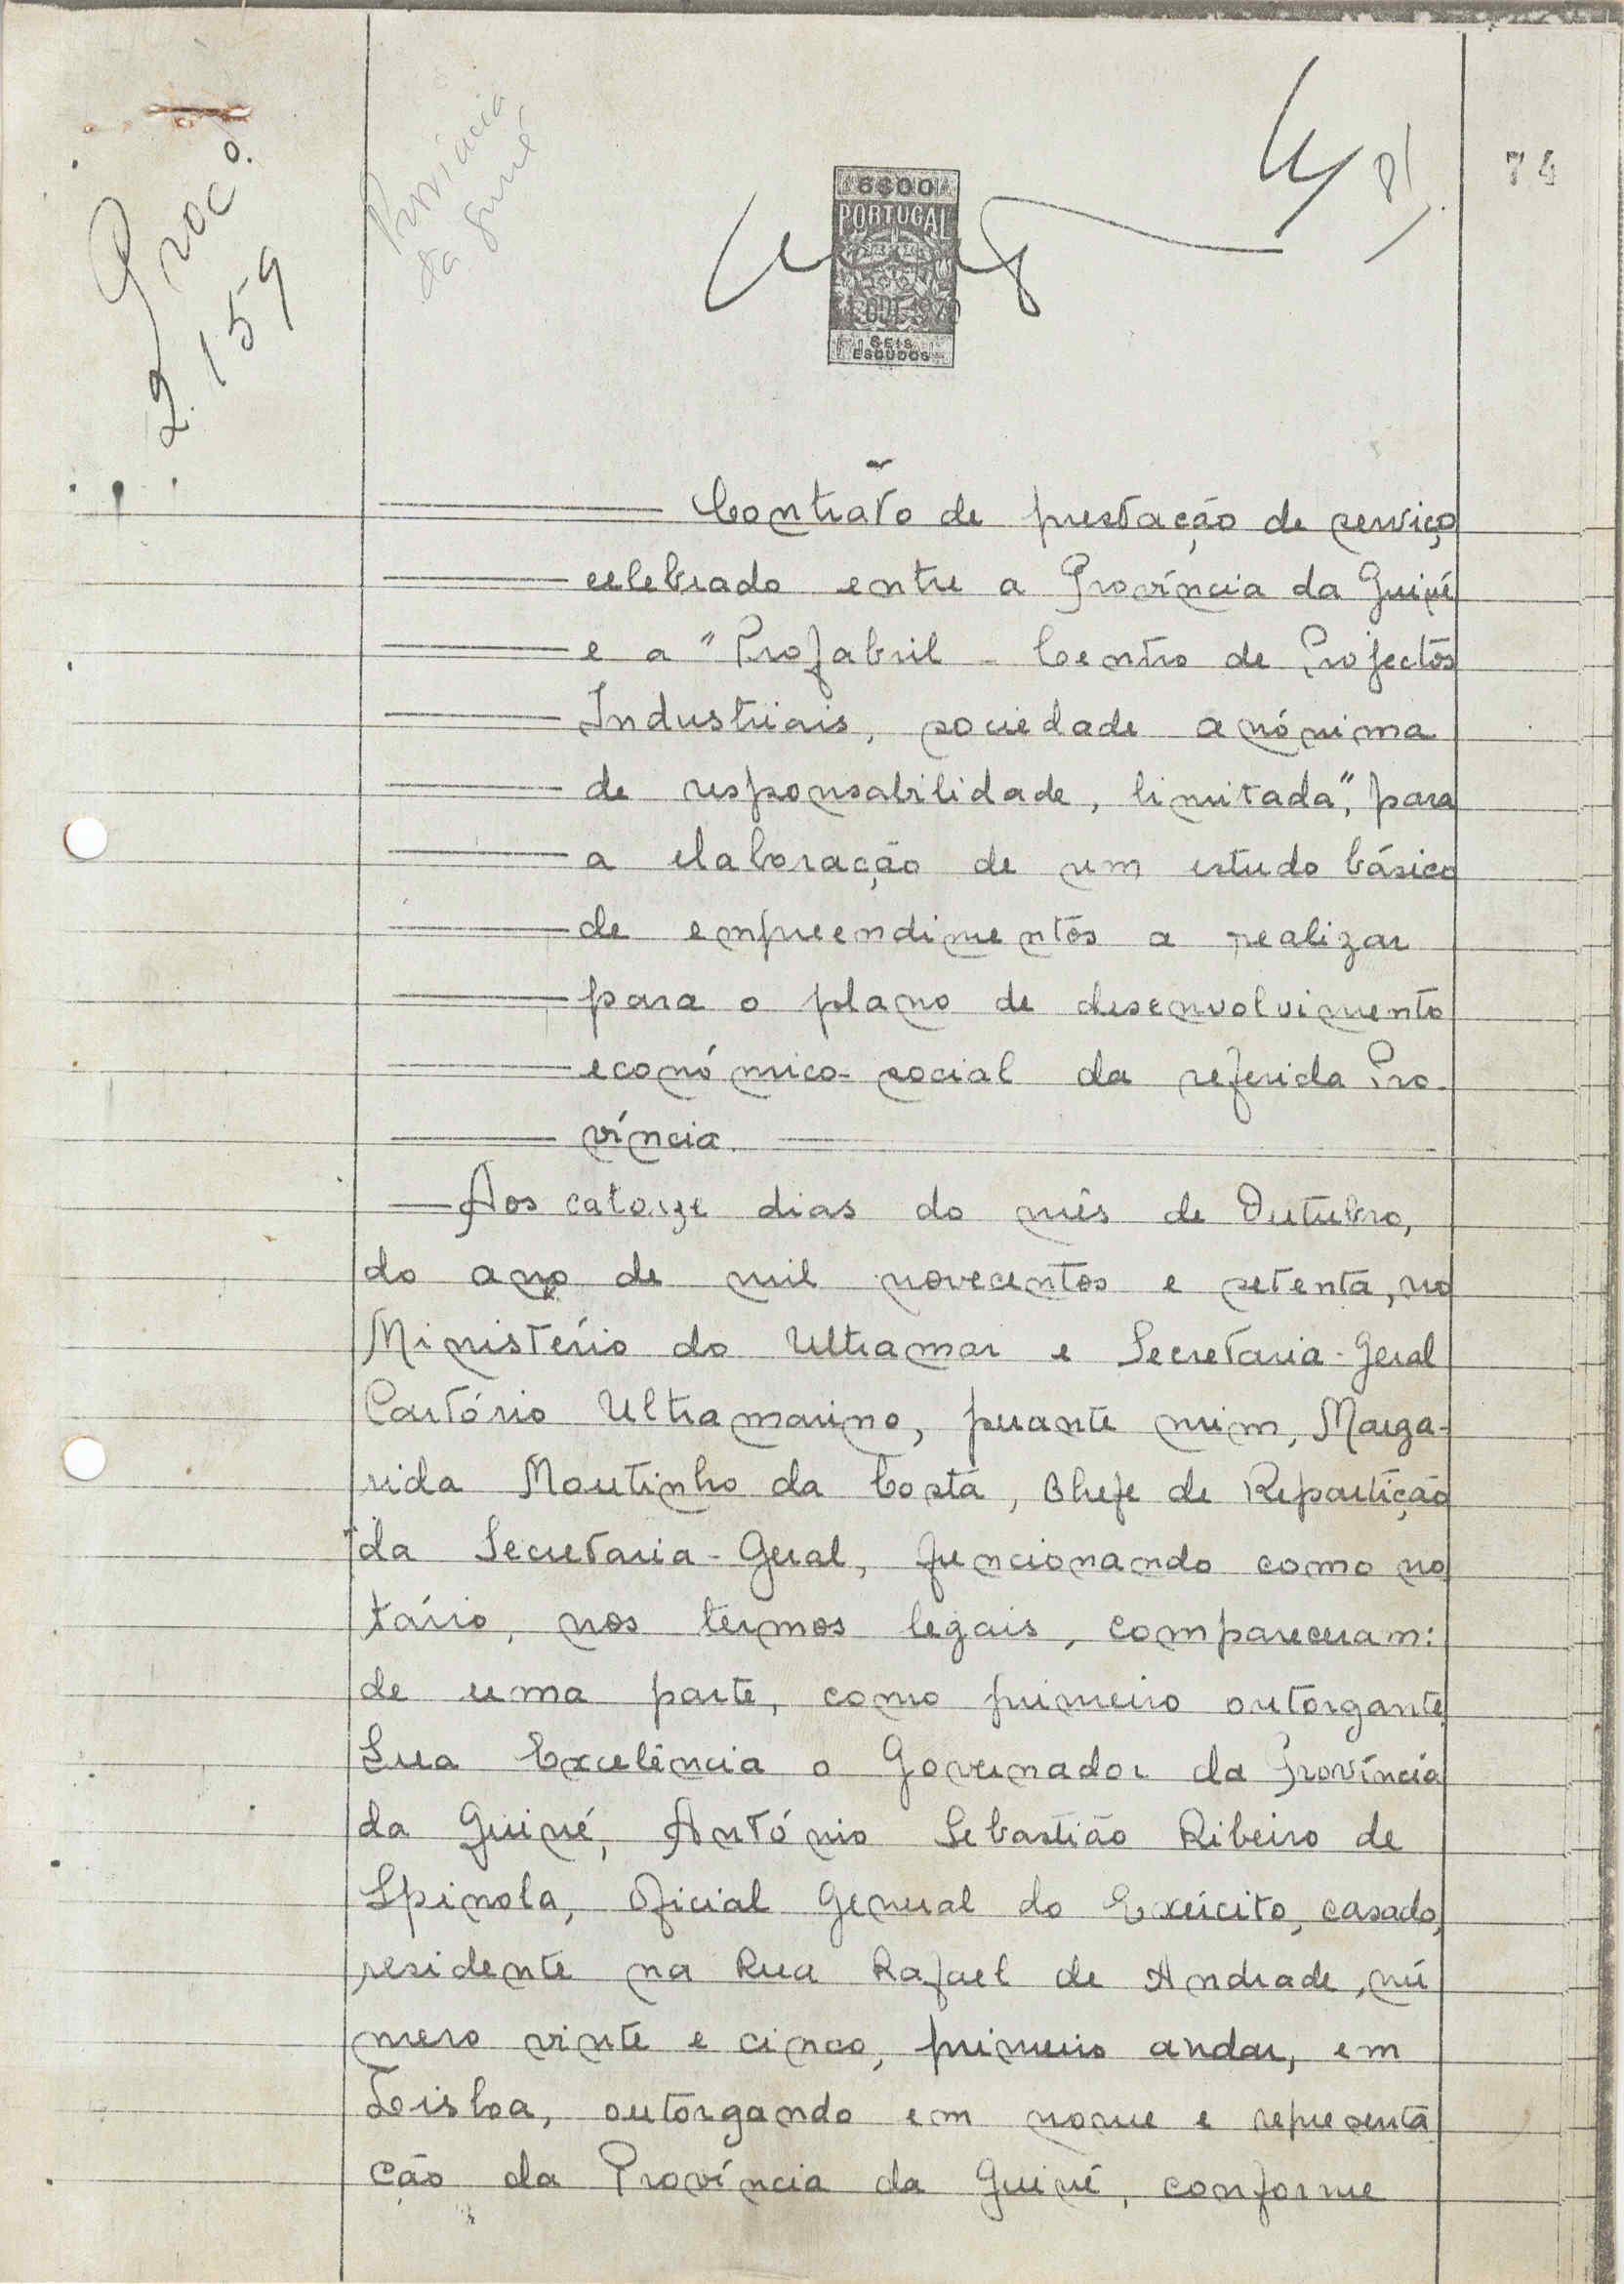 74
Proc.º
2.159
Província
da Guiné
6$00
PORTUGAL
OUT 1970
SEIS
ESCUDOS
Contrato de prestação de serviço
celebrado entre a Província da Guiné
e a "Profabril - Centro de Projectos
Industriais, sociedade anónima
de responsabilidade, limitada", para
a elaboração de um estudo básico
de empreendimentos a realizar
para o plano de desenvolvimento
económico-social da referida Pro-
víncia.
Aos catorze dias do mês de Outubro,
do ano de mil novecentos e setenta, no
Ministério do Ultramar e Secretaria-Geral
Cartório Ultramarino, perante mim, Marga-
rida Moutinho da Costa, Chefe de Repartição
da Secretaria-Geral, funcionando como no
tário, nos termos legais, compareceram:
de uma parte, como primeiro outorgante
Sua Excelência o Governador da Província
da Guiné, António Sebastião Ribeiro de
Spinola, Oficial General do Exército, casado,
residente na Rua Rafael de Andrade, nú
mero vinte e cinco, primeiro andar, em
Lisboa, outorgando em nome e representa
ção da Província da Guiné, conforme